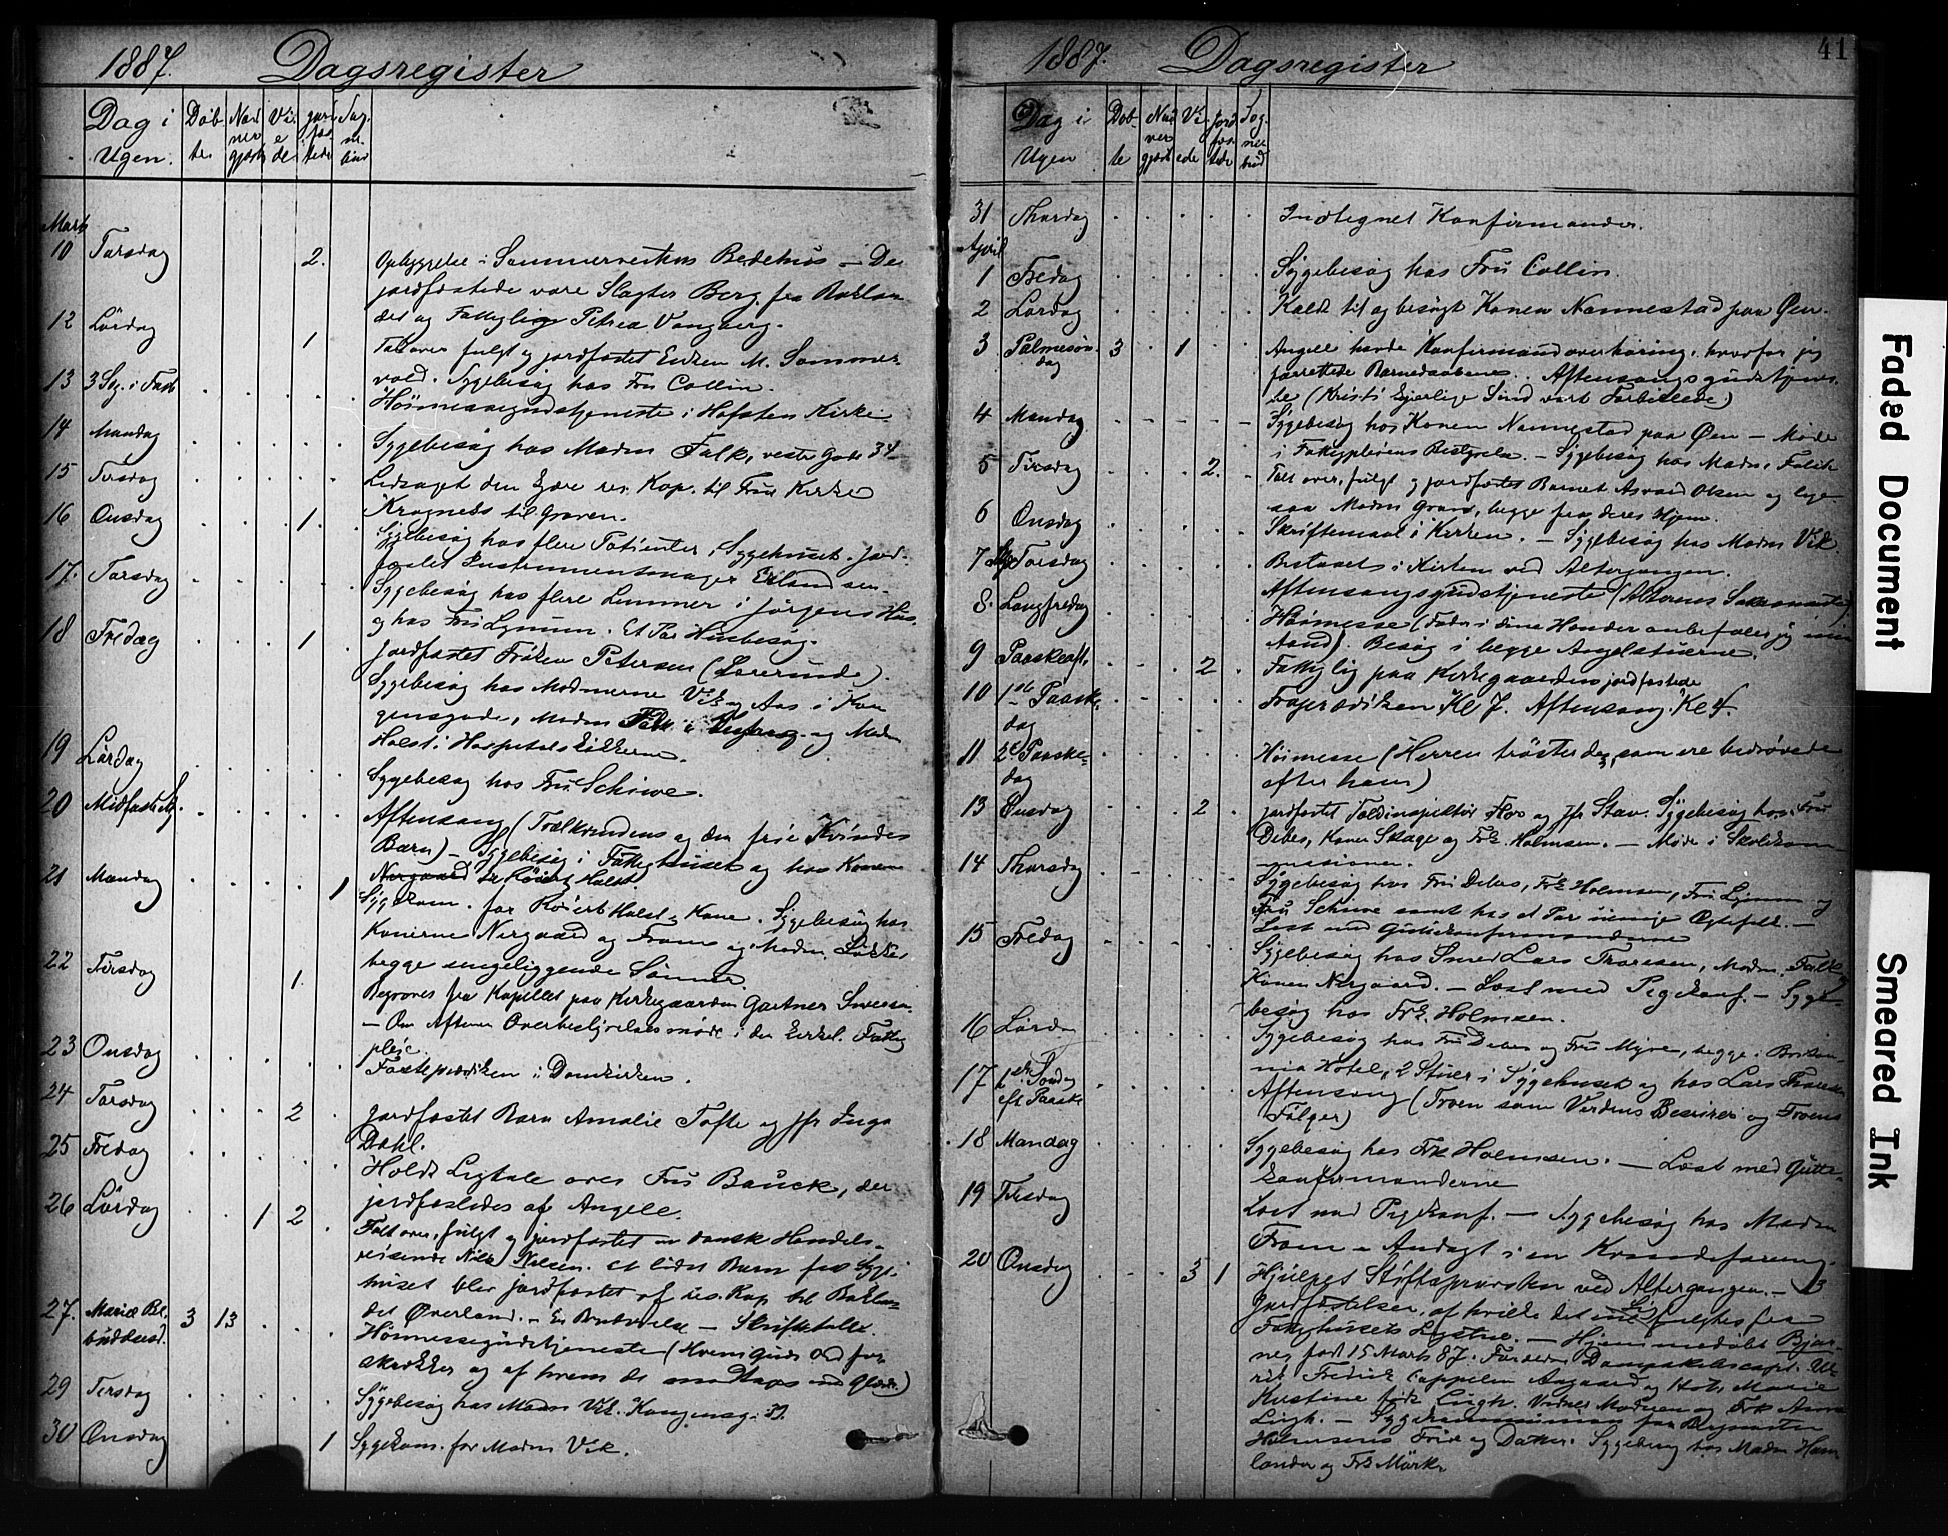 1887. Dagsregister
Dag i Ugen. Döbte Nadvergjæst Viede Jordfæstede Sognebud
Marts
10 Torsdag 2. Opbyggelse i Sommerverkets Bedehus – De
jordfæstede vare Slagter Berg fra Baklan
det og Fattiglig Petrea Vangberg.
12 Lördag 1 Talt over fulgt og jordfæstet Enken M. Sommer
vold. Sygebesøg hos Fru Collin.
13 3 Sg. i Fast
Høimessegudstjeneste i Hospitals Kirke
14 Mandag Sygebesøg hos Madm Falk, vestre Gade 34
15 Tirsdag Ledsaget den kjære res. Kap. til Frue Kirke
Krogness til Graven.
16 Onsdag 1. Sygebesøg hos flere Patienter i Sygehuset. Jord-
fæstet Instrumentmager Erlandsen
17. Torsdag Sygebesøg hos flere Lemmer i Jörgens Hus,
og hos Fru Lysum. Et Par Husbesøg.
18 Fredag 1 Jordfæstet Frøken Petersen (Lærerinde).
Sygebesøg hos Madmerne Vik og Aas i Kon
gensgade, Madm Falk og Madm
Holst i Hospitalskirken.
19 Lördag Sygebesøg hos Fru Schiwe.
20 Midfaste Sg. Aftensang (Trælkvindens og den frie Kvindes
Barn) – Sygebesøg i Fattighuset og hos Konen
Nergaard
21 Mandag 1 Sygekom. for Holst og Kone. Sygebesøg hos
Konerne Nergaard og Fram og Madm
begge sengeliggende Sønner.
22 Tirsdag 1. Begraves fra Kapellet paa Kirkegaarden Gartner
– Om Aftenen Overbestyrelsesmøde i den Fattig
pleie.
23 Onsdag Fasteprædiken i Domkirken.
24 Torsdag 2 Jordfæstet Barn Amalie Tofte og Jfr Inga
Dahl.
25 Fredag Holdt Ligtale over Fru Bauck, der
jordfæstedes af Angell.
26 Lördag 1 2 Talt over, fulgt og jordfæstet en dansk Handels-
reisende Nils Nielsen. Et lidet Barn fra Syge-
huset blev jordfæstet af res. Kap. til Baklan-
det Øverland. – En Brudevielse – Skriftetale.
27. Mariæ Be-
budelsesd. 3 13 Høimessegudstjeneste (Hvem Guds Ord for-
skrækker og af hvem det modtages med Glæde)
29 Tirsdag Sygebesøg hos Madm Vik. Kongensg.
30 Onsdag 1 Sygekom. for Madm Vik.
1887. Dagsregister 41
Dag i Ugen Døbte Nadvergjæst Viede Jordfæstede Sognebud
31 Thorsdag Indtegnet Konfirmander.
April
1 Fredag Sygebesøg hos Fru Collin.
2 Lördag Kaldt til og besøgt Konen Nannestad paa Øen.
3 Palmesøn-
dag 3 1 Angell havde Konfirmandoverhøring, hvorfor jeg
forrettede Barnedaabene. Aftensangsgudstjenes-
te (Kristi kjærlige Sind vort Forbillede)
4 Mandag Sygebesøg hos Konen Nannestad paa Øen – Møde
i Fattigpleiens Bestyrelse. – Sygebesøg hos Madm. Falk
5 Tirsdag 2. Talt over, fulgt og jordfæstet Barnet Asvald Olsen og lige-
saa Madm Gran, begge fra deres Hjem.
6 Onsdag Skriftemaal i Kirken. – Sygebesøg hos Madm Vik.
7 Skjærtorsdag Bistaaet i Kirken ved Altergangen.
Aftensangsgudstjeneste (Alterens Sakramente)
8. Langfredag Høimesse (Fader i dine Hænder anbefaler jeg min
Aand). Besøg i begge Angelstuerne.
9 Paaskeaft. 2. Fattiglig paa Kirkegaarden jordfæstede
10 1ste Paaske-
dag Froprædiken Kl 7. Aftensang Kl 4.
11 2den Paaske-
dag Høimesse (Herren trøster dem, som ere bedrøvede
efter ham)
13 Onsdag 2 Jordfæstet Toldinspektør Floo og Jfr Stav. Sygebesøg hos Fru
Debes, Konen Skage og Frk. Holmsen. – Møde i Skolekom
missionen.
14 Thorsdag Sygebesøg hos Fru Debes, Frk Holmsen, Fru Lysum og
Fru Schiwe samt hos et Par uenige Ægtefolk. –
Læst med Guttekonfirmanderne
15 Fredag Sygebesøg hos Smed Lars Thoresen, Madm. Falk
Konen Nergaard. – Læst med Pigekonf. – Syge-
besøg hos Frk. Holmsen.
16 Lørdag Sygebesøg hos Fru Debes og Fru Myre, begge i Britan-
nia Hotel, 2 Stuer i Sygehuset og hos Lars Thoresen
17 1ste Søndag
eft Paaske Aftensang (Troen som Verdens Beseirer og Troens
Følger)
18 Mandag Sygebesøg hos Frk Holmsen. – Læst med Gutte-
konfirmanderne
19 Tirsdag Læst med Pigekonf. – Sygebesøg hos Madm
Fram – Andagt i en Kvindeforening.
20 Onsdag 3 1 Hjulpet Stiftsprovsten ved Altergangen. – 3
Jordfæstelser, af hvilke det ene fulgtes fra
Fattighusets Ligstue. – Hjemmedøbt Bjar-
ne, født 15 Marts 87. Forældre Dampskibscapt. Ul-
rik Fredrik Cappelen Aagaard og Hst. Marie
Kristine født Lügh. Vidner Moderen og Frk Anna
Lügh. – Sygekommunion for
Holmsens Frue og Datter. Sygebesøg hos Madm Ham-
lander og Frk Mörk
Faded Document
Smeared Ink